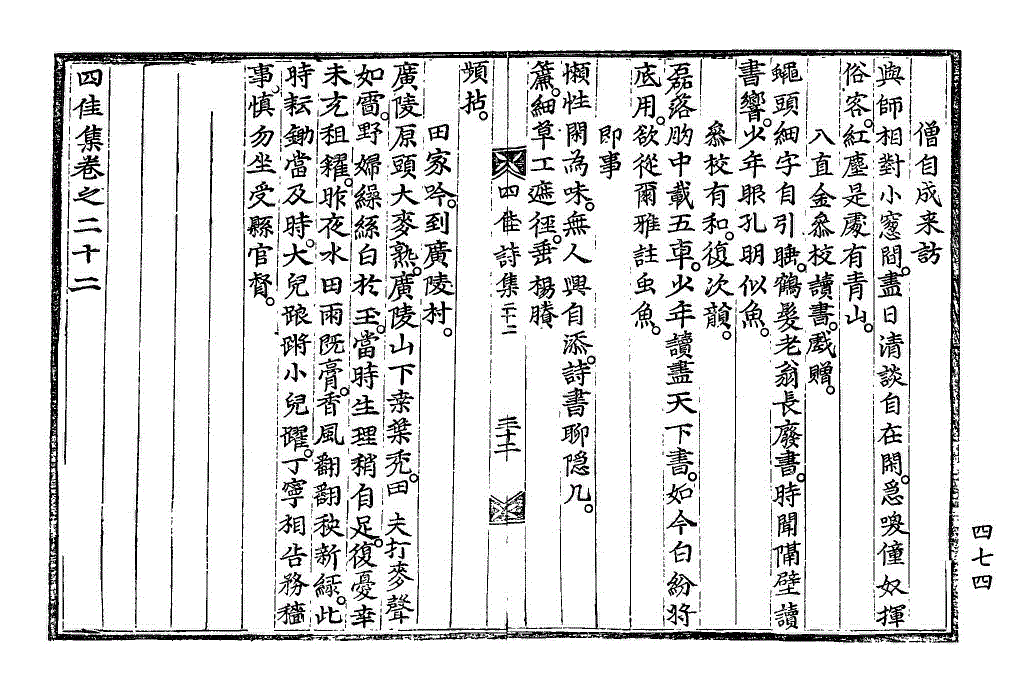 僧自成来訪
與師相對小窓間。盡日清談自在閑。爲喚僮奴揮
俗客。紅塵是處有青山。
入直金叅校讀書。戲贈。
蠅頭細字自引睡。鶴髮老翁長廢書。時聞隔壁讀
書響。少年眼孔明似魚。
叅校有和。復次韻。
磊落胷中載五車。少年讀盡天下書。如今白紛將
底用。欲從爾雅註虫魚。
即事
懶性閑為味。無人興自添。詩書聊隐几。
簾。細草工遮徑。垂楊賸
四佳詩集 二十二
頻拈。
田家吟。到廣陵村。
廣陵原頭大麥熟。廣陵山下桒葉禿。田夫打麥聲
如雷。野婦繰絲白於玉。當時生理稍自足。復憂幸
未充租糴。昨夜水田雨既膏。香風翻翻秧新綠。此
時耘鋤當及時。大兒踉蹡小兒躍。丁寧相告務穡
事。慎勿坐受縣官督。
四佳集卷之二十二
四七四